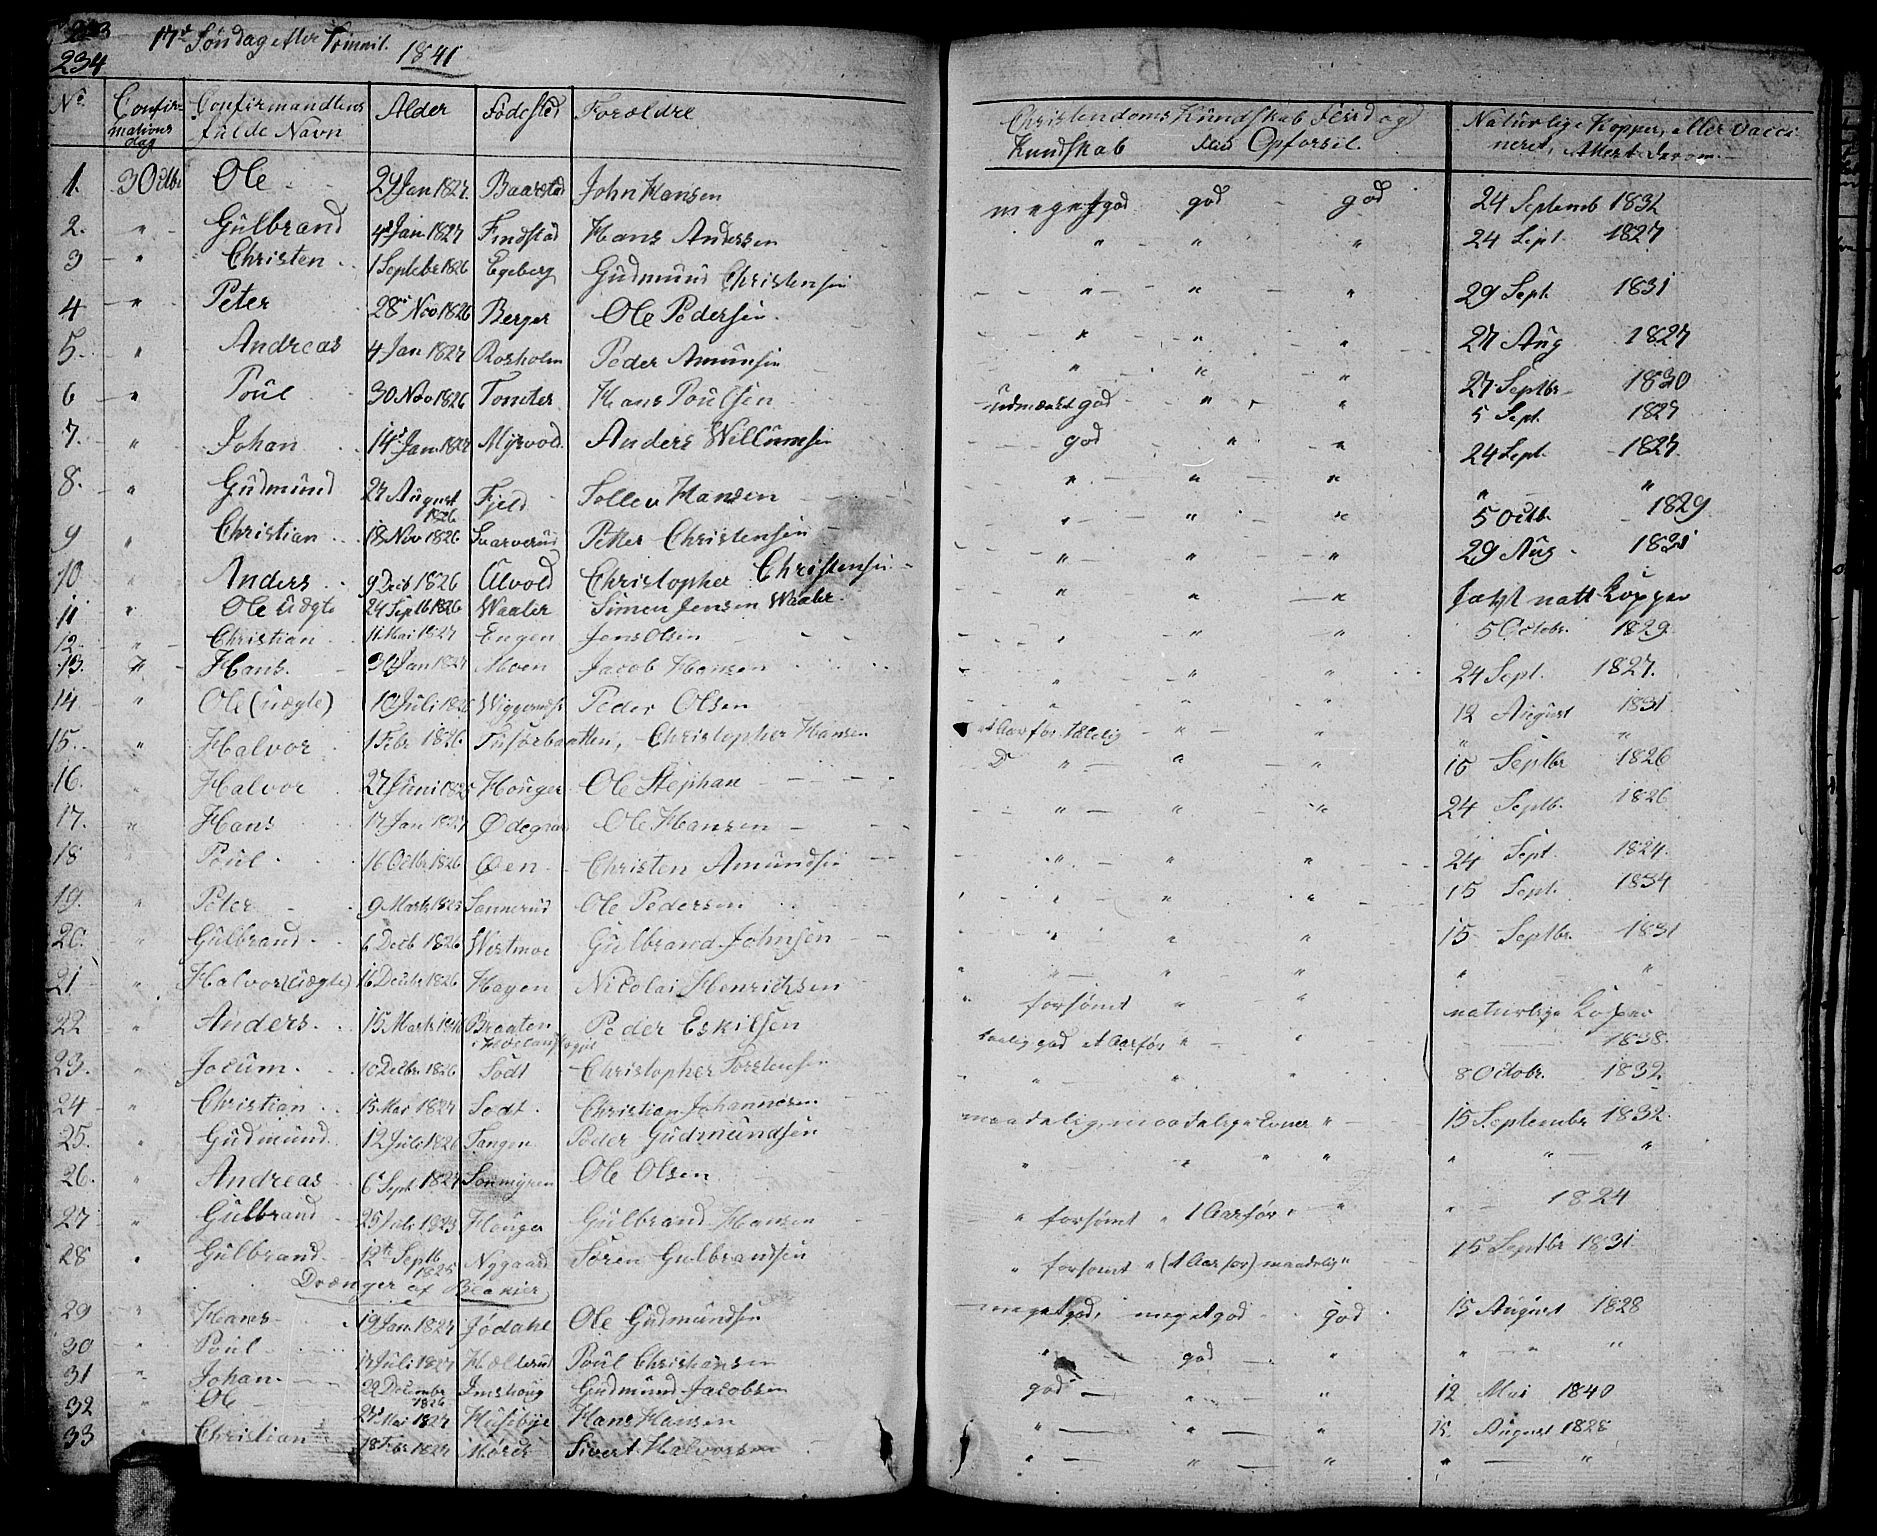 234 17de Søndag efter Trinit. 1841
No. Confirmations dag Confirmandens fulde Navn Alder Fødested Forældre Christendoms Kundskab Flid og Kundskab Opførsel. Naturlige Kopper, eller vaccineret, Attest derom.
1. 3 Octbr Ole 27 Jan 1827. Baarstad John Hansen meget god god god 24 Septemb 1832
2. " Gülbrand 4de Jan 1827 Findstad Hans Andersen " " " 24 Sept. 1827
3 " Christen 1 Septebr 1826 Egeberg Gudmund Christensen " " " 29 Sept. 1831
4 " Peter 28de Nov 1826 Berger Ole Pedersen " " " 27 Aug 1827
5. " Andreas 4 Jan 1827 Rosholm Peder Amünsen " " " 27 Septbr 1830
6 " Poül 30 Nov 1826 Tomter Hans Poülsen udmærket god " " 5 Sept. 1827
7. " Johan 14de Jan 1827 Myrvold Anders Willumsen god " " 24 Sept. 1827
8. " Gudmünd 27 August 1826 Fjeld Tollev Hansen " " " " "
9 " Christian 18 Nov 1826 Svarverud Petter Christensen " " " 5 Octb. 1829
10. " Anders 9 Decb 1826 Alvold Christopher Christensen " " " 29 Aug 1831
11 " Ole Uægte 24 Septb 1826 Waaler Simen Jensen Waaler " " " havt natt Kopper
12 " Christian 11 Mai 1827 Engen Jens Olsen " " " 5 Octobr. 1829
13. " Hans 30 Jan 1827 Moen Jacob Hansen " " " 24 Sept. 1827.
14 " Ole (uægte) 10 Juli 1826 Peder Olsen " " " 12 August 1831
15. " Halvor 1 Febr 1826. Christopher Hansen taalelig " " " "
16. " Halvor 27 Juni 1825 Houger Ole Stephan D " " " 15 Septbr 1826
17. " Hans 17 Jan 1827 Ødegaard Ole Hansen " " " 24 Septb. 1826
18 " Poül 16 Octbr 1826 Øen Christen Amündsen " " " 24 Sept. 1824.
19. " Peter 9 Marts 1825 Sannerud Ole Pedersen " " " 15 Sept. 1834
20. " Gülbrand 6 Decb 1826 Westmoe Gülbrand Johnsen " " " 15 Septbr. 1831
21 " Halvor (uægte) 16 Decbr 1826 Hagen Nicolai Henrichsen " " " " "
22 " Anders 15 Marts Braaten Peder Eskilsen forsømt " " naturlige Kopper 1838.
23. " Jocum 10 Decbr. 1826 Sødt Christopher Torstensen taalig god " " 8 Octobr. 1832.
24 " Christian 15 Mai 1827 Sødt Christian Johannesen " " " 15 Septembr 1832.
25. " Gudmünd 12 Juli 1826 Tangen Peder Gudmündsen maadelig, " " " "
26. " Andreas 6 Sept 1827 Sonmyren Ole Olsen " " " " 1824
27 " Gülbrand 25 Juli 1823 Houger Gülbrand Hansen " forsømt " "
28 " Gülbrand 12te Septb 1825 Nygaard Søren Gulbrandsen " forsømt " maadelig " 15 Septbr 1831.
Drænger af Blakier
29 " Hans 19 Jan 1827 Jødahl Ole Gudmündsen meget god, meget god god 15 August 1828
30 " Poül 17 Juli 1827 Poül Christiansen " god " " " "
31 " Johan 22 December 1826 Gudmünd Jacobsen god " " 12 Mai 1840
32 " Ole 27de Mai 1827 Husebye Hans Hansen " " " 15. August 1828
33 " Christian 18 Febr 1827 Mørch Sivert Halvorsen " " " " "